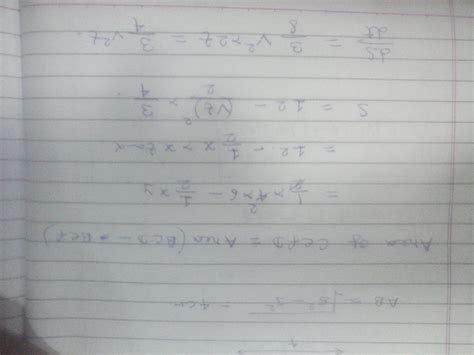 4
AB = √5² - 3² = 4cm
Area of CEFD = Area (BCD - BEF)
= 1/2 × 4 × 6 - 1/2 xy
= 12 - 1/2 x × x tan α
S = 12 - (Vt)²/2 × 3/4
dS/dt = 3/8 V² × 2t = 3/4 V²t.